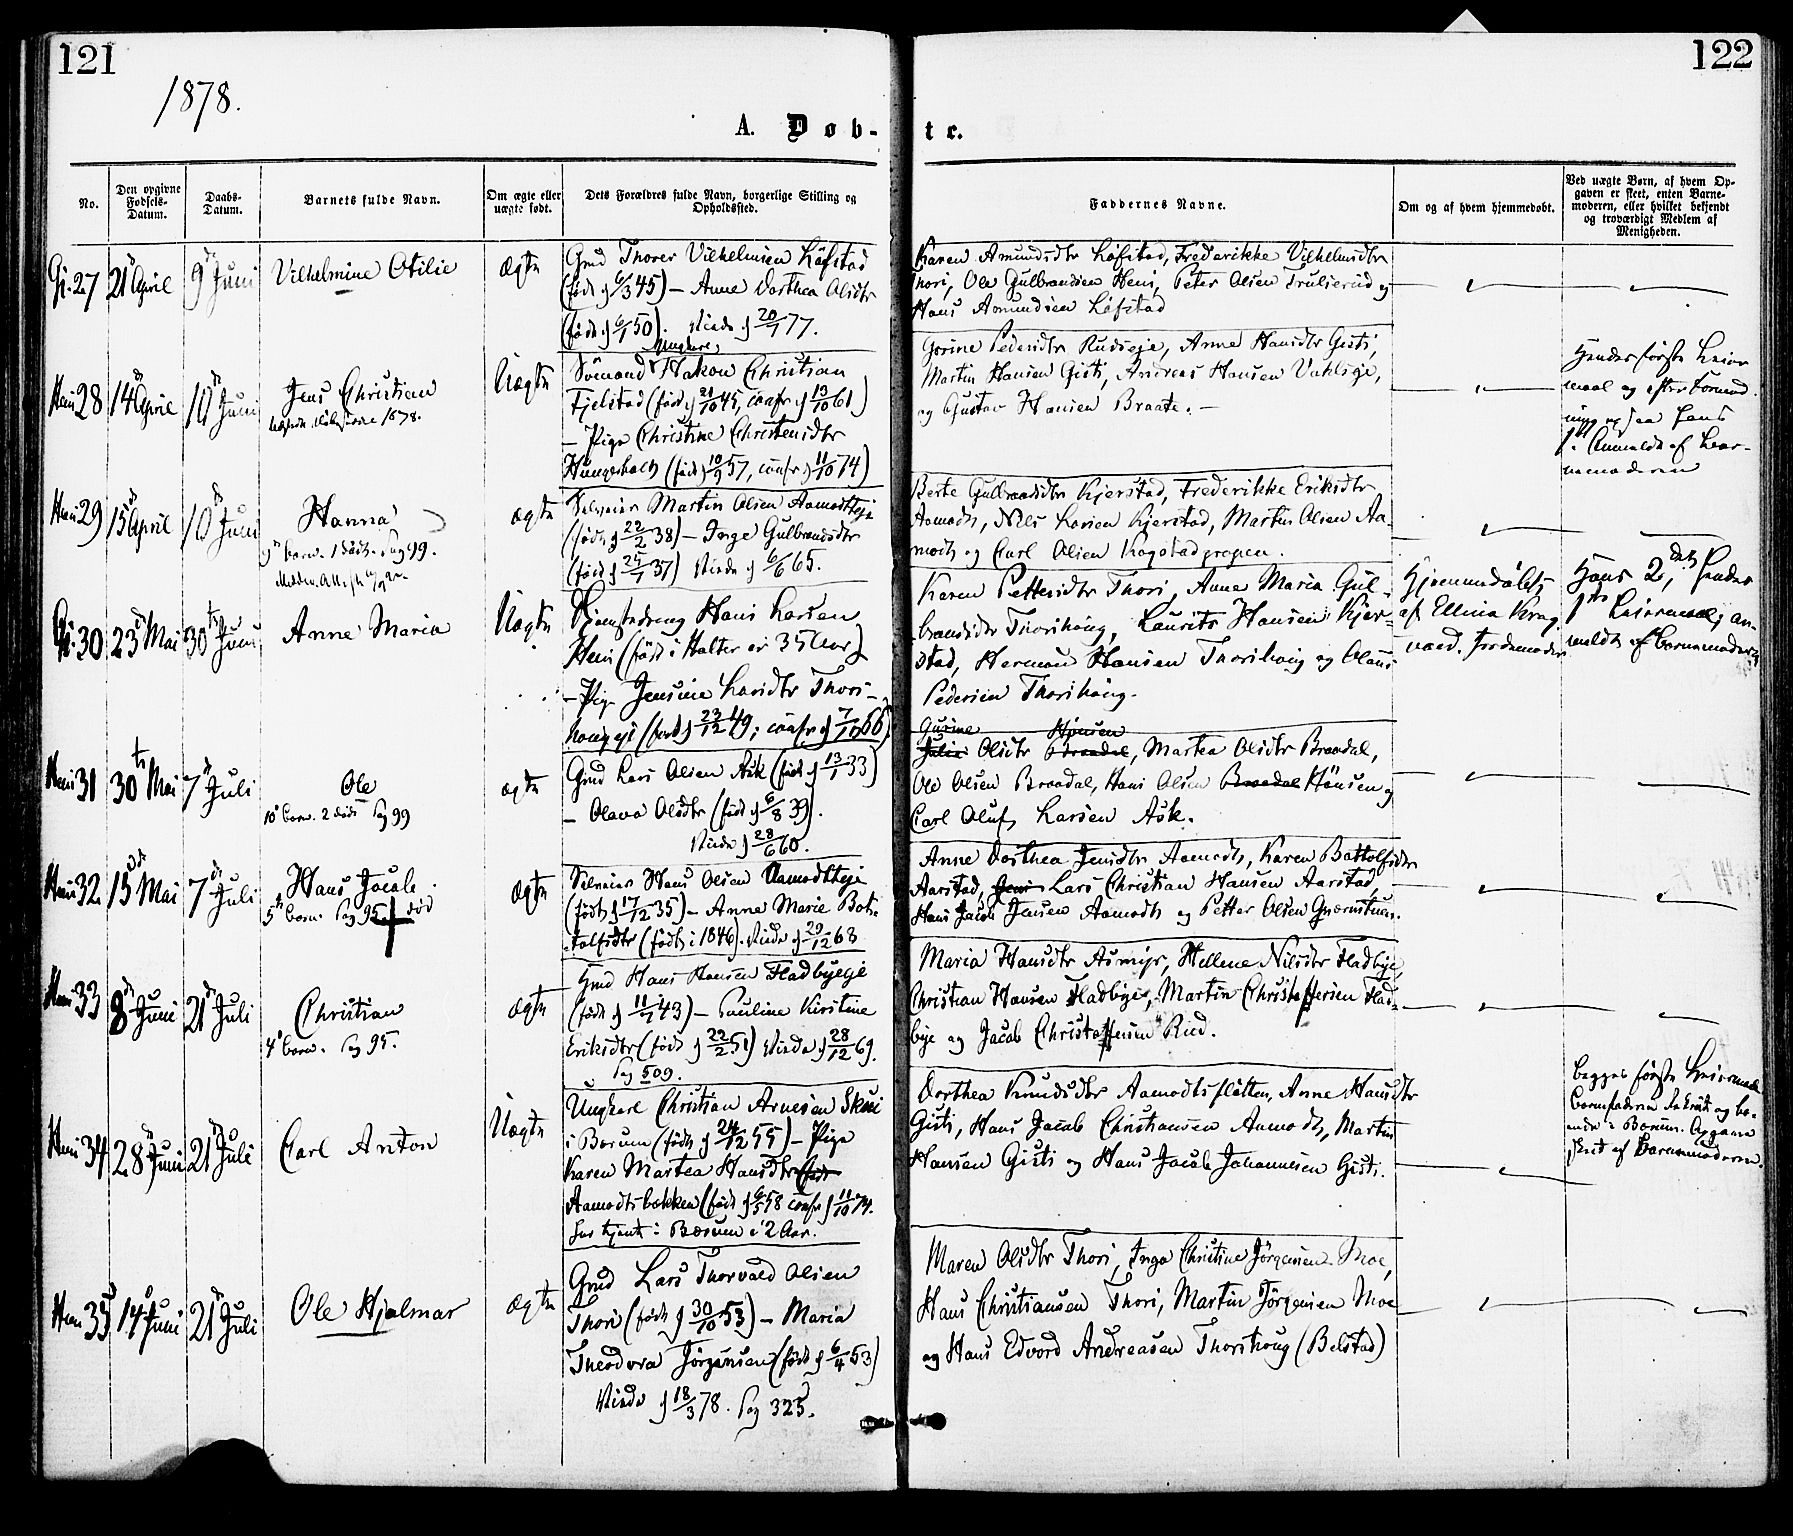 121
122
1878.
A. Døb-
te.
No.
Den opgivne Fødsels-Datum.
Daabs-Datum.
Barnets fulde Navn.
Om ægte eller uægte født.
Dets Forældres fulde Navn, borgerlige Stilling og Opholdssted.
Faddernes Navne.
Om og af hvem hjemmedøbt.
Ved uægte Børn, af hvem Op-
gaven er skeet, enten Barne-
moderen, eller hvilket bekjendt
og troværdigt Medlem af
Menigheden.
27
21 April
9 Juni
Vilhelmine Otilie
ægte
Grd Thorer Vilhelmsen Löfstad
(født 6/3 45) – Anne Dorthea Olsdtr
(født 6/1 50). Viede 20/1 77.
Karen Amundsdtr Löfstad, Frederikke Vilhelmsdtr
Thori, Ole Gulbrandsen Heni, Peter Olsen Trulserud og
Hans Amundsen Löfstad
28
14 April
10 Juni
Jens Christian
Uægte
Ungkarl,
Sömand Hakon Christian
Fjelstad (født 21/10 45, confr 13/10 61)
– Pige Christine Christensdtr
Hungerholt (født 10/9 57, confr 11/10 74)
Gorine Pedersdtr Rudseje, Anne Hansdtr Gisti,
Martin Hansen Gisti, Andreas Hansen
og Gustav Hansen Braate. –
Hendes første Leier-
maal og efter
ogsaa hans
1ste. Anmeldt af Bar-
nemoderen
29
15 April
10 Juni
Hanna
9de Barn. 1 død. Pag 99.
ægte
Selveier Martin Olsen Aamodteje
(født 22/2 38) – Inge Gulbrandsdtr
(født 25/1 37) Viede 6/6 65.
Berte Gulbrandsdtr Kjerstad, Frederikke Eriksdtr
Aamodt, Nils Larsen Kjerstad, Martin Olsen Aa-
modt og Carl Olsen
30
23 Mai
30 Juni
Anne Maria
Uægte
Hans Larsen
Heni (født i Holter er 35 Aar)
– Pige Jensine Larsdtr Thors-
(født 23/12 49; confr 7/10 66)
Karen Pettersdtr Thori, Anne Maria Gul-
brandsdtr Thorshöug, Laurits Hansen Kjer-
stad, Herman Hansen Thorshöug og Olaus
Pedersen Thorshöug.
Hjemmedöbt
af Ellina
Jordemoder
Hans 2det, hendes
1ste Leiermaal; an-
meldt af Barnemoderen
31
30 Mai
7 Juli
Ole
10 Barn. 2 døde Pag 99
ægte
Grd Lars Olsen Ask (født 13/1 33)
– Olava Olsdtr (født 6/8 39).
Viede 28/6 60.
Gurine Hønsen
Julie Olsdtr Braadal, Martea Olsdtr Braadal,
Ole Olsen Braadal, Hans Olsen Braadal Hönsen og
Carl Oluf Larsen Ask.
32
15 Mai
7 Juli
Hans Jacob
5te Barn. Pag 95. død
ægte
Selveier Hans Olsen Aamodteje
(født 17/12 35) – Anne Marie Bot-
tolfsdtr (født i 1846). Viede 29/12 68
Anne Dorthea Jensdtr Aamodt, Karen Bottolfsdtr
Aarstad, Jens Lars Christian Hansen Aarstad,
Hans Jacob Jensen Aamodt og Petter Olsen
33
8 Juni
21 Juli
Christian
4 Barn. Pag 95.
ægte
Grd Hans Hansen Fladbyeje
(født 11/7 43) – Pauline Kirstine
Eriksdtr (født 22/2 51) Viede 28/12 69.
Pag 509.
Maria Hansdtr Asmyr, Hellene Nilsdtr Fladbye,
Christian Hansen Fladbye, Martin Christoffersen Flad-
bye og Jacob Christoffersen Rud.
34
28 Juni
21 Juli
Carl Anton
Uægte
Ungkarl Christian Arnesen Skui
i Bærum (født 24/12 55) – Pige
Karen Martea Hansdtr født
Aamodtsbækken (født 6/5 58 confr 11/10 74.
har tjent i Bærum i 2 Aar.
Dorthea Knudsdtr Aamodtsfløtten, Anne Hansdtr
Gisti, Hans Jacob Christiansen Aamodt, Martin
Hansen Gisti og Hans Jacob Johannesen Gisti.
Begges første Leiermaal
Barnefaderen
i Bærum. Opgave
skeet af Barnemoderen.
35
14 Juni
21 Juli
Ole Hjalmar
ægte
Grd Lars Thorvald Olsen
Thori (født 30/10 53) – Maria
Theodora Jörgensen (født 6/4 53)
Viede 18/3 78. Pag 325.
Maren Olsdtr Thori, Inga Christine Jörgensen Moe,
Hans Christiansen Thori, Martin Jörgensen Moe
og Hans Edvard Andreasen Thorshöug (Belstad)